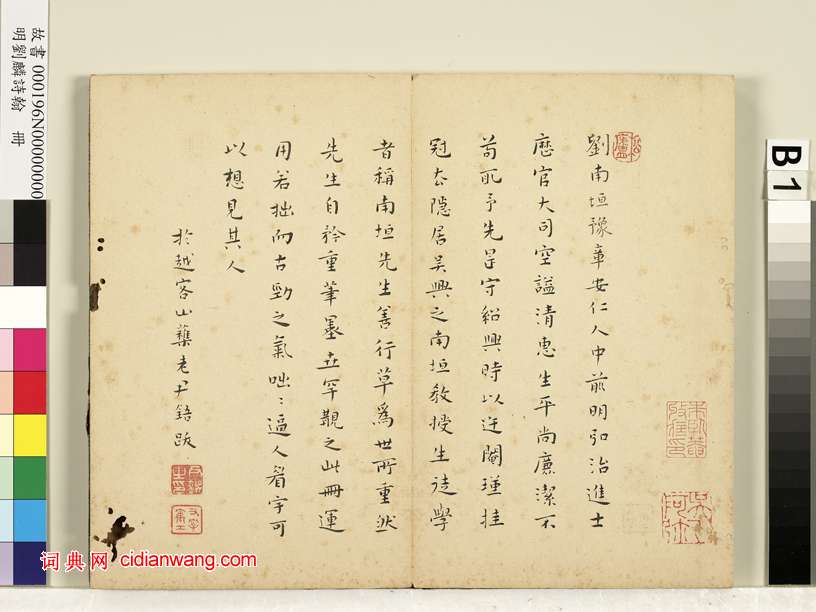 劉南垣豫章安仁人中前明弘治進士
歷官大司空謚清惠生平尚廉潔不
苟取予先是守紹興時以迕閹瑾挂
冠去隱居吳興之南垣教授生徒學
者稱南垣先生善行草為世所重然
先生自矜重筆墨世罕覯之此冊運
用若拙而古勁之氣咄咄逼人看字可
以想見其人
於越客山藥老尹鋙跋
故書 000196N000000000
明劉麟詩翰 冊
B1
词典网 cidianwang.com